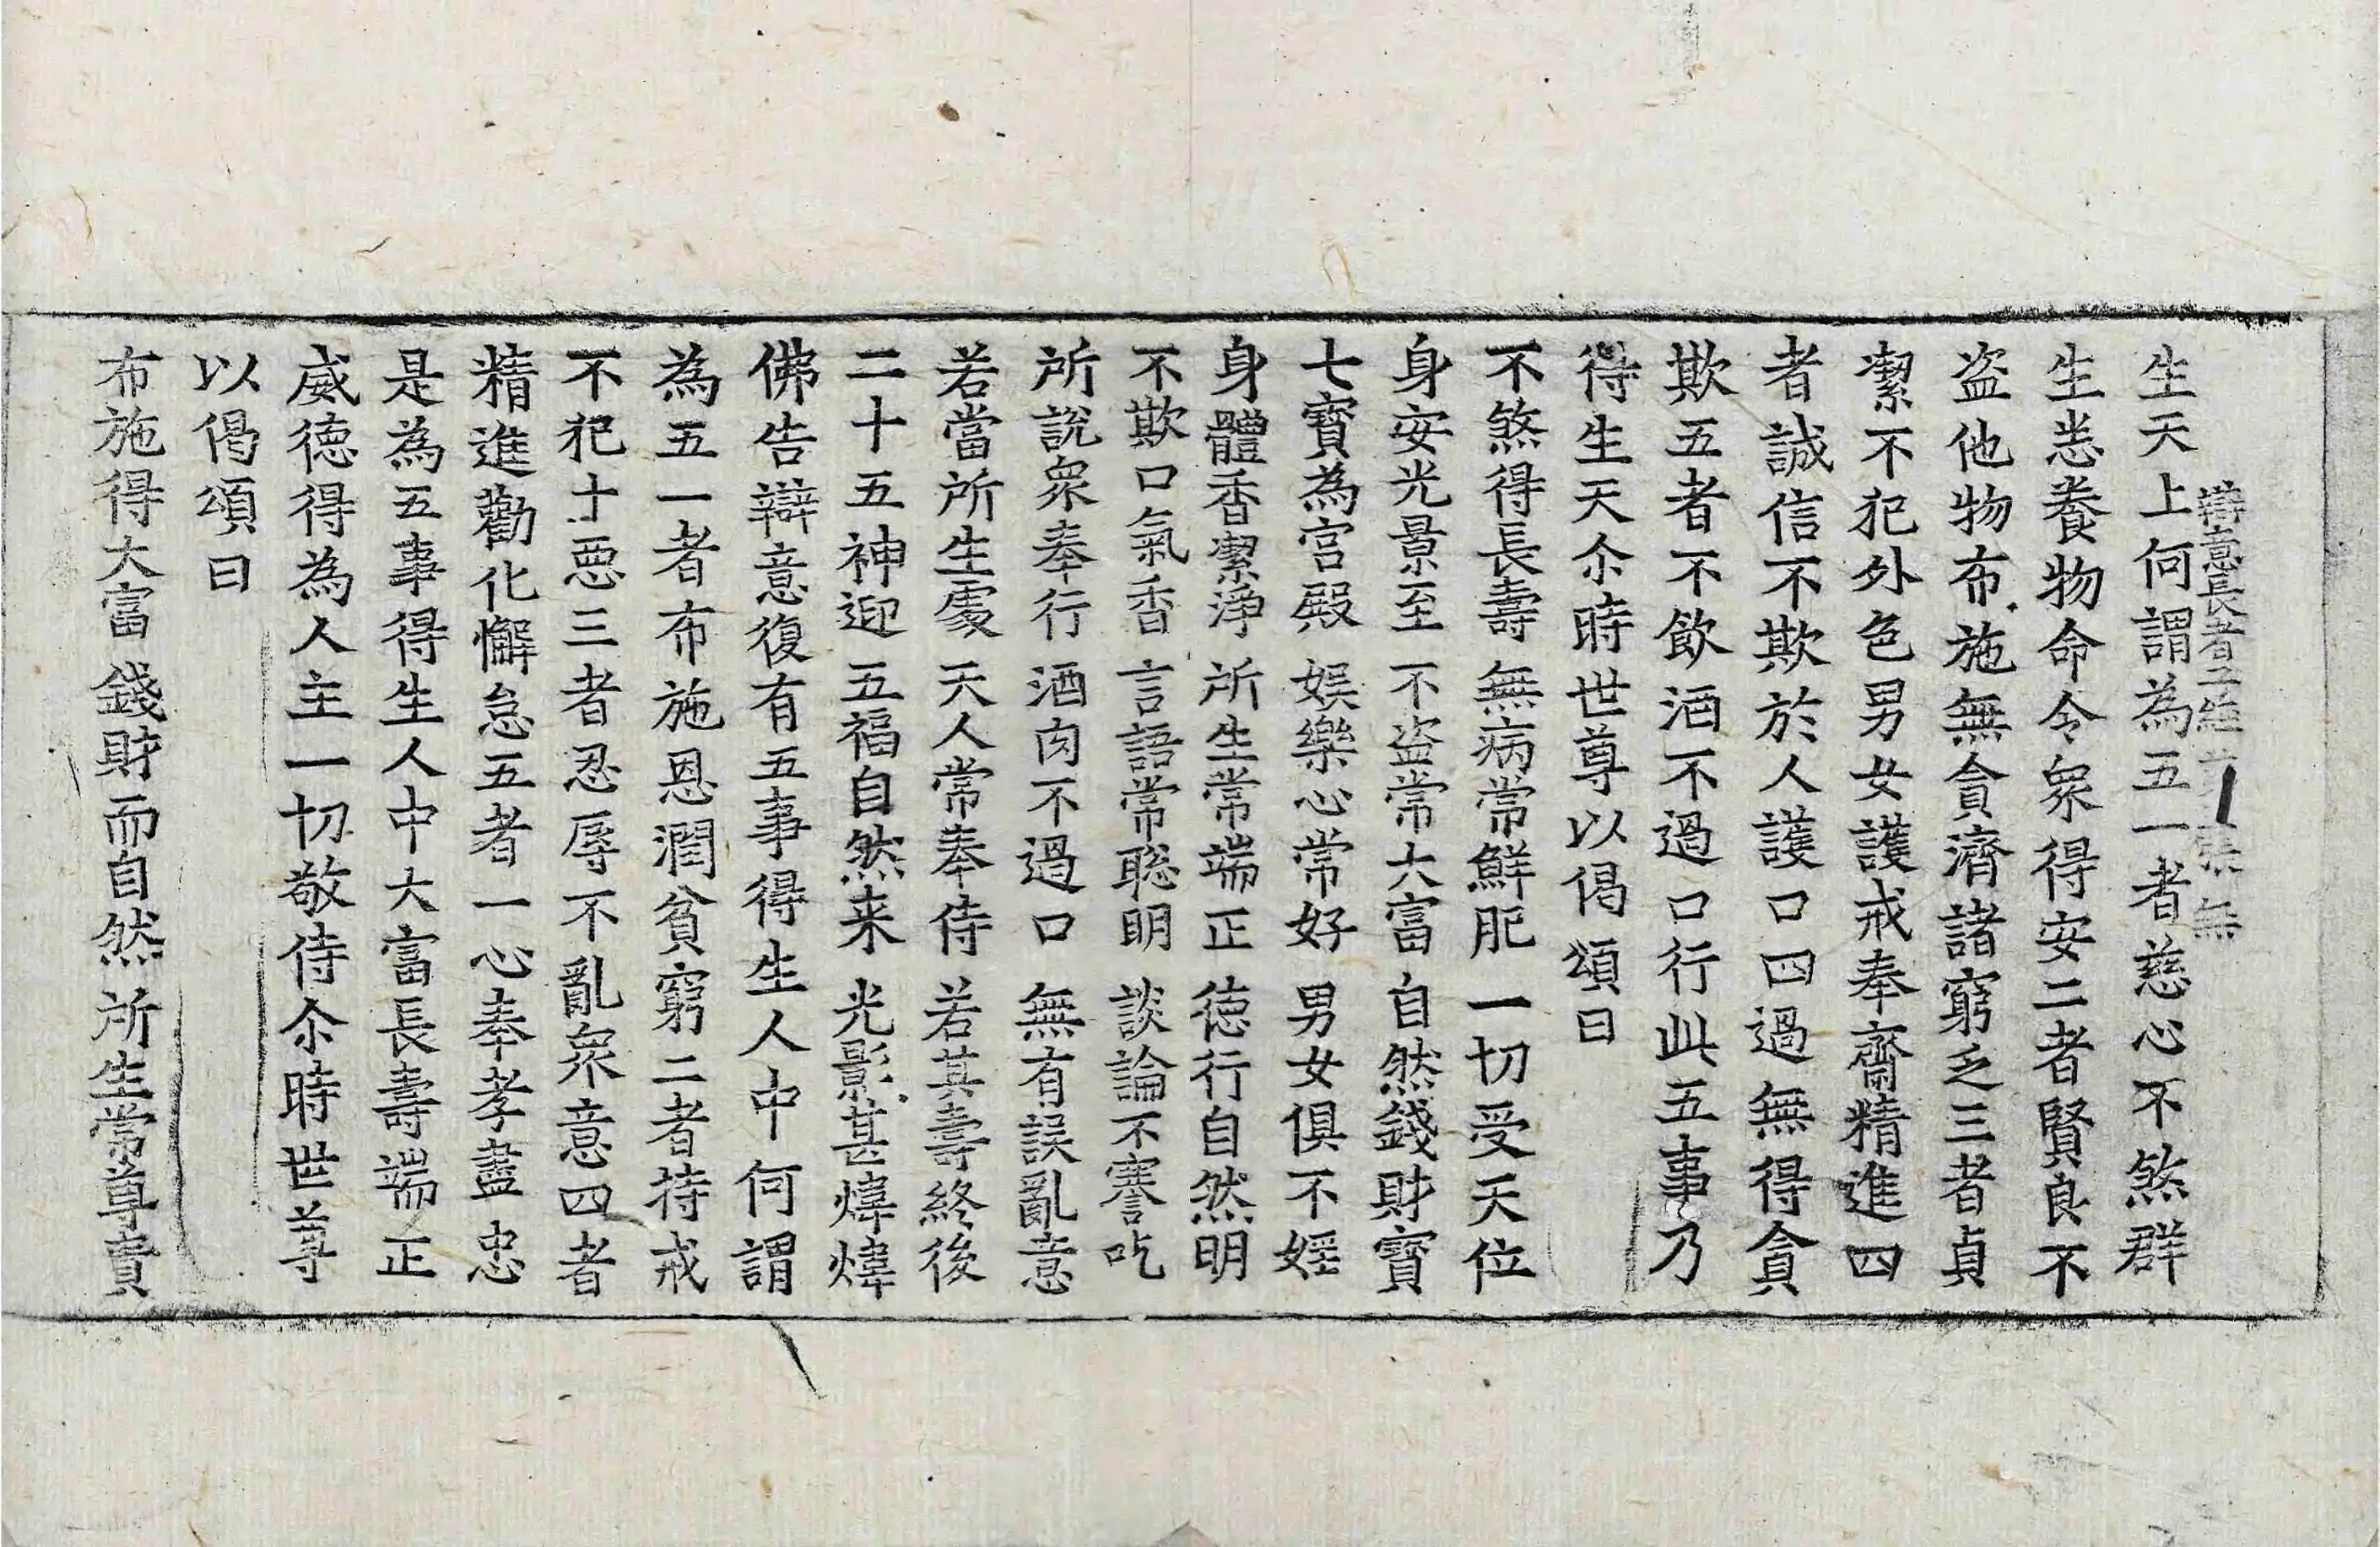 辯意長者子經 張 無
生天上何謂為五一者慈心不煞群
生悉養物命令眾得安二者賢良不
盜他物布施無貪濟諸窮乏三者貞
潔不犯外色男女護戒奉齋精進四
者誠信不欺於人護口四過無得貪
欺五者不飲酒不過口行此五事乃
得生天尒時世尊以偈頌曰
不煞得長壽 無病常鮮肥 一切受天位
身安光景至 不盜常大富 自然錢財寶
七寶為宮殿 娛樂心常好 男女俱不婬
身體香潔淨 所生常端正 德行自然明
不欺口氣香 言語常聡明 談論不謇吃
所說眾奉行 酒肉不過口 無有誤亂意
若當所生處 天人常奉侍 若其壽終後
二十五神迎 五福自然来 光影甚煒煒
佛告辯意復有五事得生人中何謂
為五一者布施恩潤貧窮二者持戒
不犯十惡三者忍辱不亂眾意四者
精進勸化懈怠五者一心奉孝盡忠
是為五事得生人中大富長壽端正
威德得為人主一切敬侍尒時世尊
以偈頌曰
布施得大富 錢財而自然 所生常尊貴